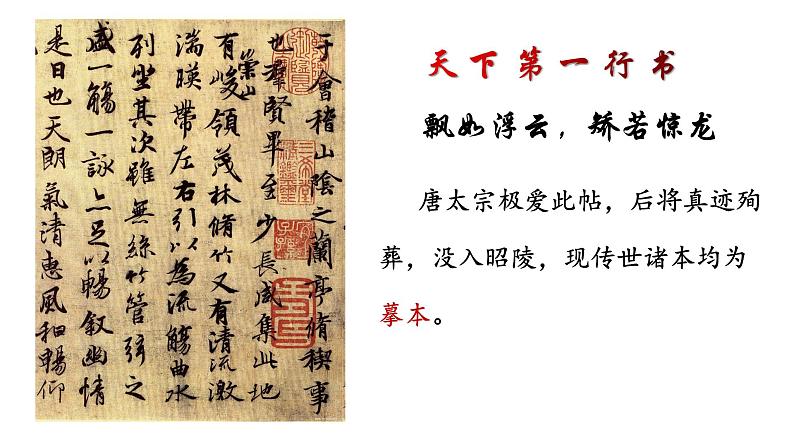 于會稽山陰之蘭亭脩稧事
也羣賢畢至少長咸集此地
有崇山峻領茂林脩竹又有清流激
湍暎帶左右引以為流觴曲水
列坐其次雖無絲竹管弦之
盛一觴一詠亦足以暢叙幽情
是日也天朗氣清惠風和暢仰
天下第一行书
飘如浮云，矫若惊龙
唐太宗极爱此帖，后将真迹殉
葬，没入昭陵，现传世诸本均为
摹本。